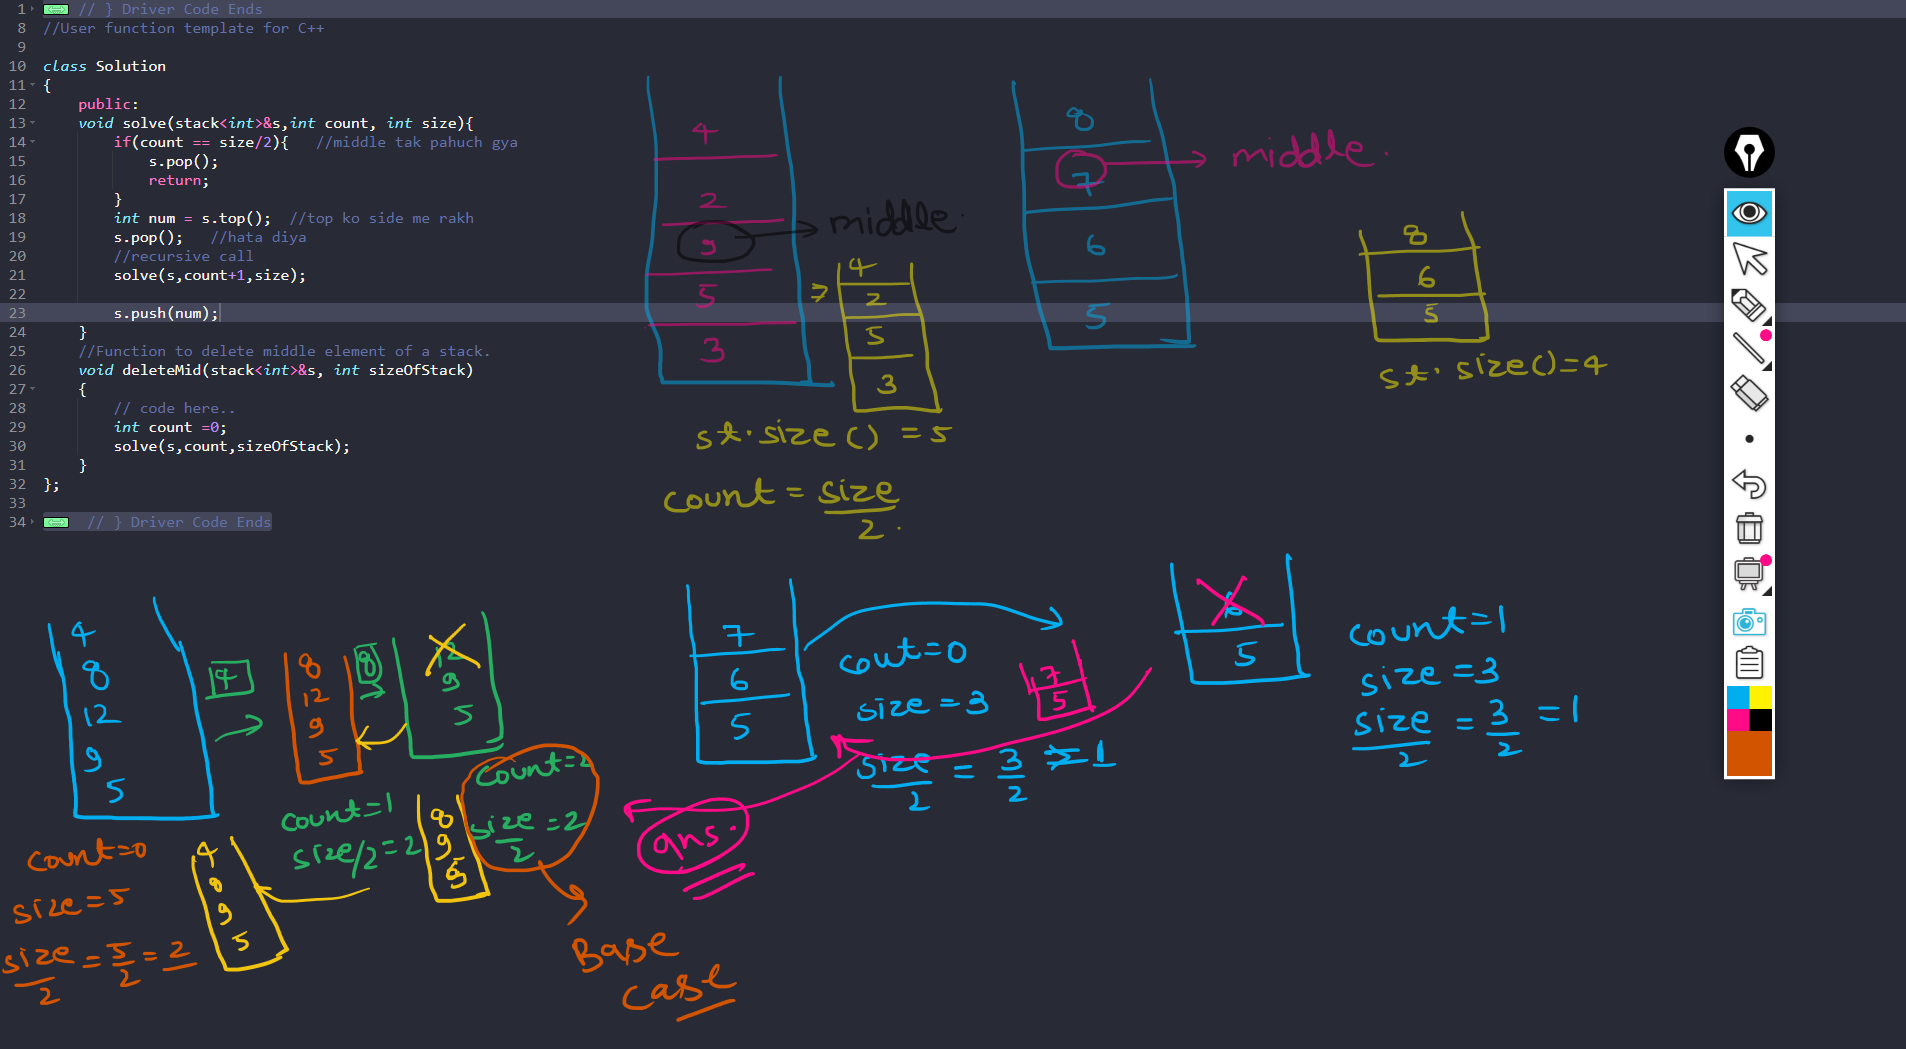 1 // } Driver Code Ends
8 //User function template for C++
9
10 class Solution
11 {
12 public:
13 void solve(stack<int>&s,int count, int size){
14 if(count == size/2){ //middle tak pahuch gya
15 s.pop();
16 return;
17 }
18 int num = s.top(); //top ko side me rakh
19 s.pop(); //hata diya
20 //recursive call
21 solve(s,count+1,size);
22
23 s.push(num);
24 }
25 //Function to delete middle element of a stack.
26 void deleteMid(stack<int>&s, int sizeOfStack)
27 {
28 // code here..
29 int count =0;
30 solve(s,count,sizeOfStack);
31 }
32 };
33
34 // } Driver Code Ends
4
2
middle.
5
3
4
2
5
3
st.size() = 5
count = size
2.
8
7
middle.
6
5
8
6
5
st.size()=4
4
8
12
9
5
4
8
12
9
5
8
12
9
5
count=0
size=5
size = 5 = 2
2 2
count=1
size/2=2
count=2
size =2
2
8
9
5
4
8
9
5
Base
case
7
6
5
cout=0
size=3
size = 3 1
2 2
7
5
ans.
6
5
count=1
size=3
size = 3 =1
2 2